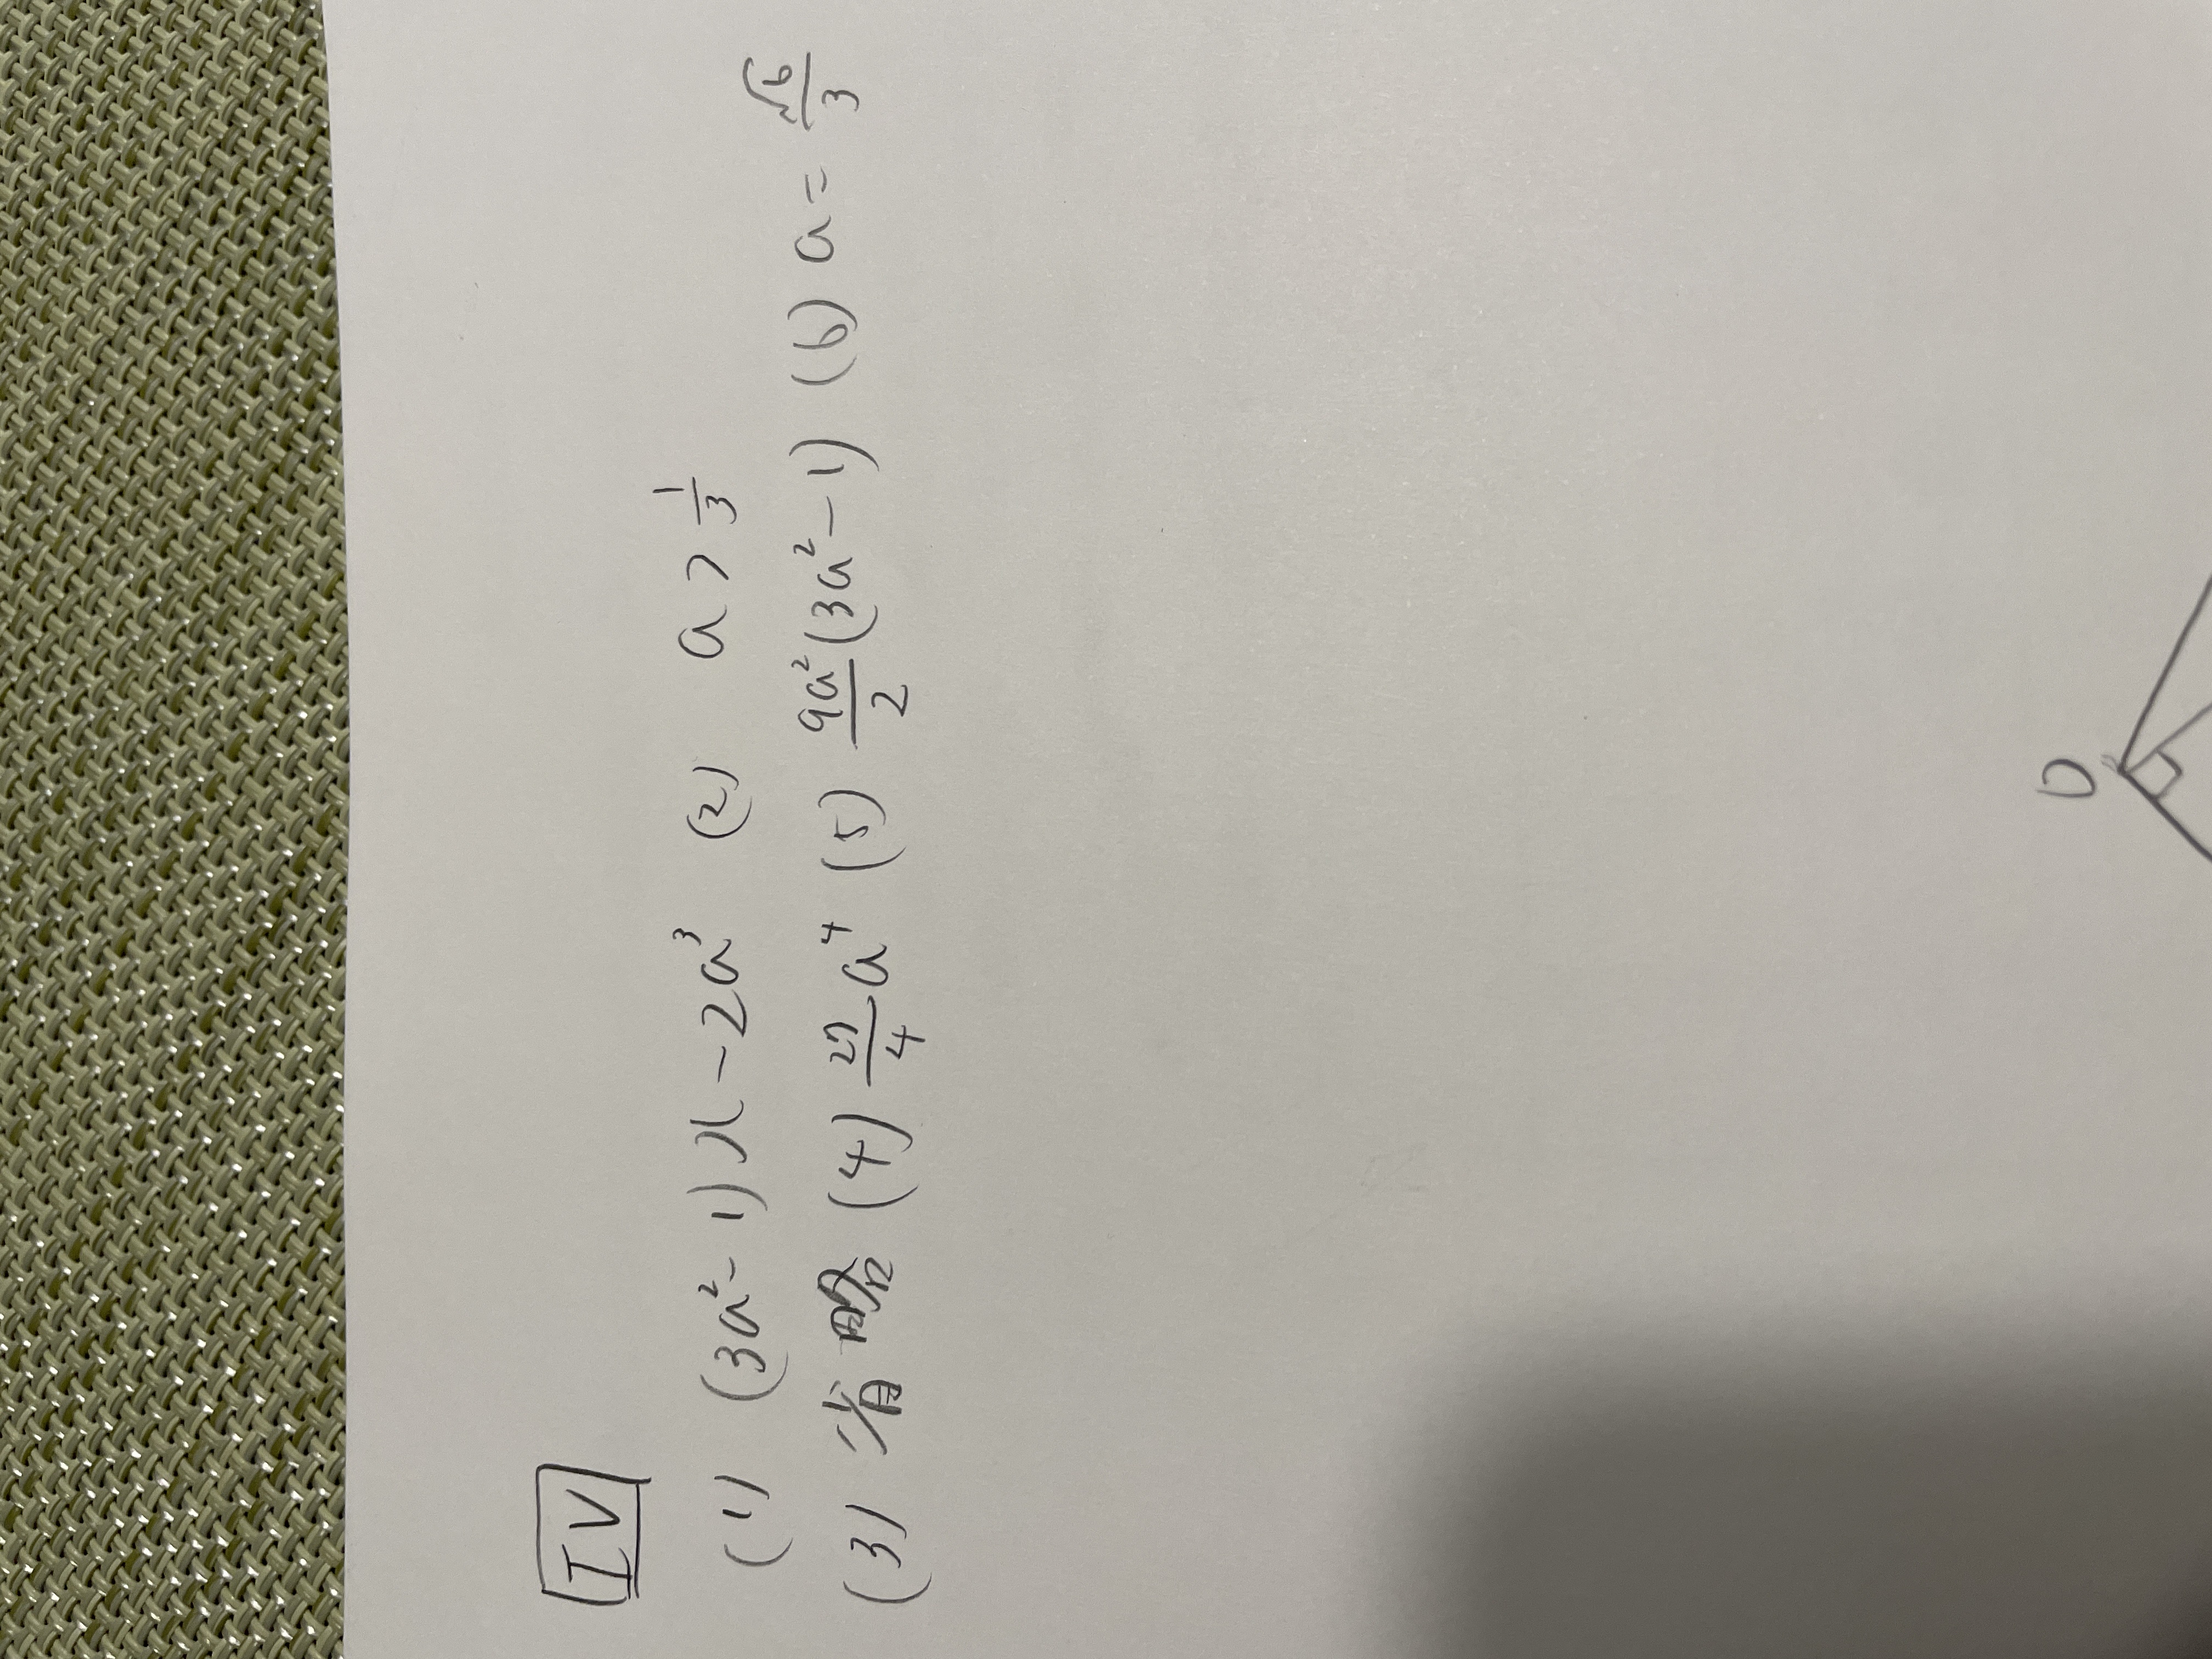 IV
(1) (3a²-1)x-2a³ (2) a>1/3
(3) 省略 (4) 27/4 a⁴ (5) 9a²/2 (3a²-1) (6) a=√6/3
D